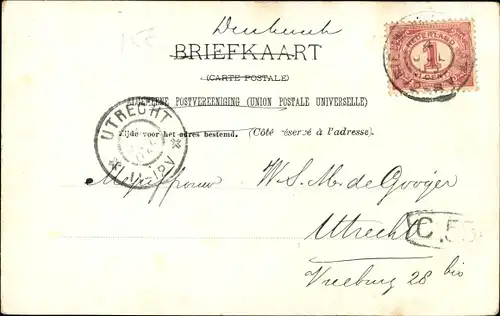 BRIEFKAART
(CARTE POSTALE)
ALGEMEENE POSTVEREENIGING (UNION POSTALE UNIVERSELLE)
Zijde voor het adres bestemd. (Côté réservé à l'adresse).
NEDERLAND
1
CENT
UTRECHT
Mejuffrouw W. S. M. de Gooijer
Utrecht
Vreeburg 28 bis